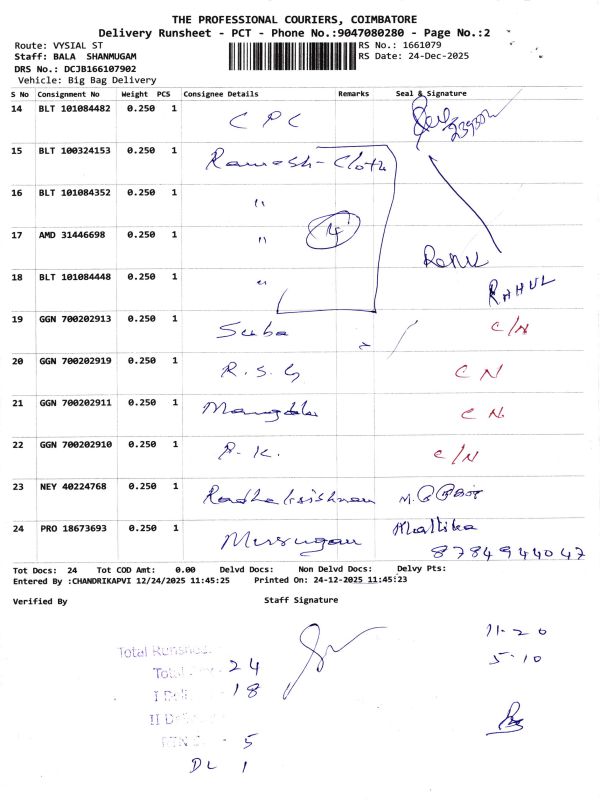 THE PROFESSIONAL COURIERS, COIMBATORE
Delivery Runsheet - PCT - Phone No.:9047080280 - Page No.:2
Route: VYSIAL ST
RS No.: 1661079
Staff: BALA SHANMUGAM
RS Date: 24-Dec-2025
DRS No.: DCJB166107902
Vehicle: Big Bag Delivery
S No Consignment No Weight PCS Consignee Details Remarks Seal & Signature
14 BLT 101084482 0.250 1 C P C
15 BLT 100324153 0.250 1 Ramesh - Cloth
16 BLT 101084352 0.250 1 "
17 AMD 31446698 0.250 1 " 4
18 BLT 101084448 0.250 1 " RAHUL
19 GGN 700202913 0.250 1 Suba C/N
20 GGN 700202919 0.250 1 R. S. G CN
21 GGN 700202911 0.250 1 CN
22 GGN 700202910 0.250 1 R. K. C/N
23 NEY 40224768 0.250 1 Radhakrishnan
24 PRO 18673693 0.250 1 Murugan Mallika
8784944047
Tot Docs: 24 Tot COD Amt: 0.00 Delvd Docs: Non Delvd Docs: Delvy Pts:
Entered By :CHANDRIKAPVI 12/24/2025 11:45:25 Printed On: 24-12-2025 11:45:23
Verified By Staff Signature
11-20
5-10
Total 24
18
5
DL 1